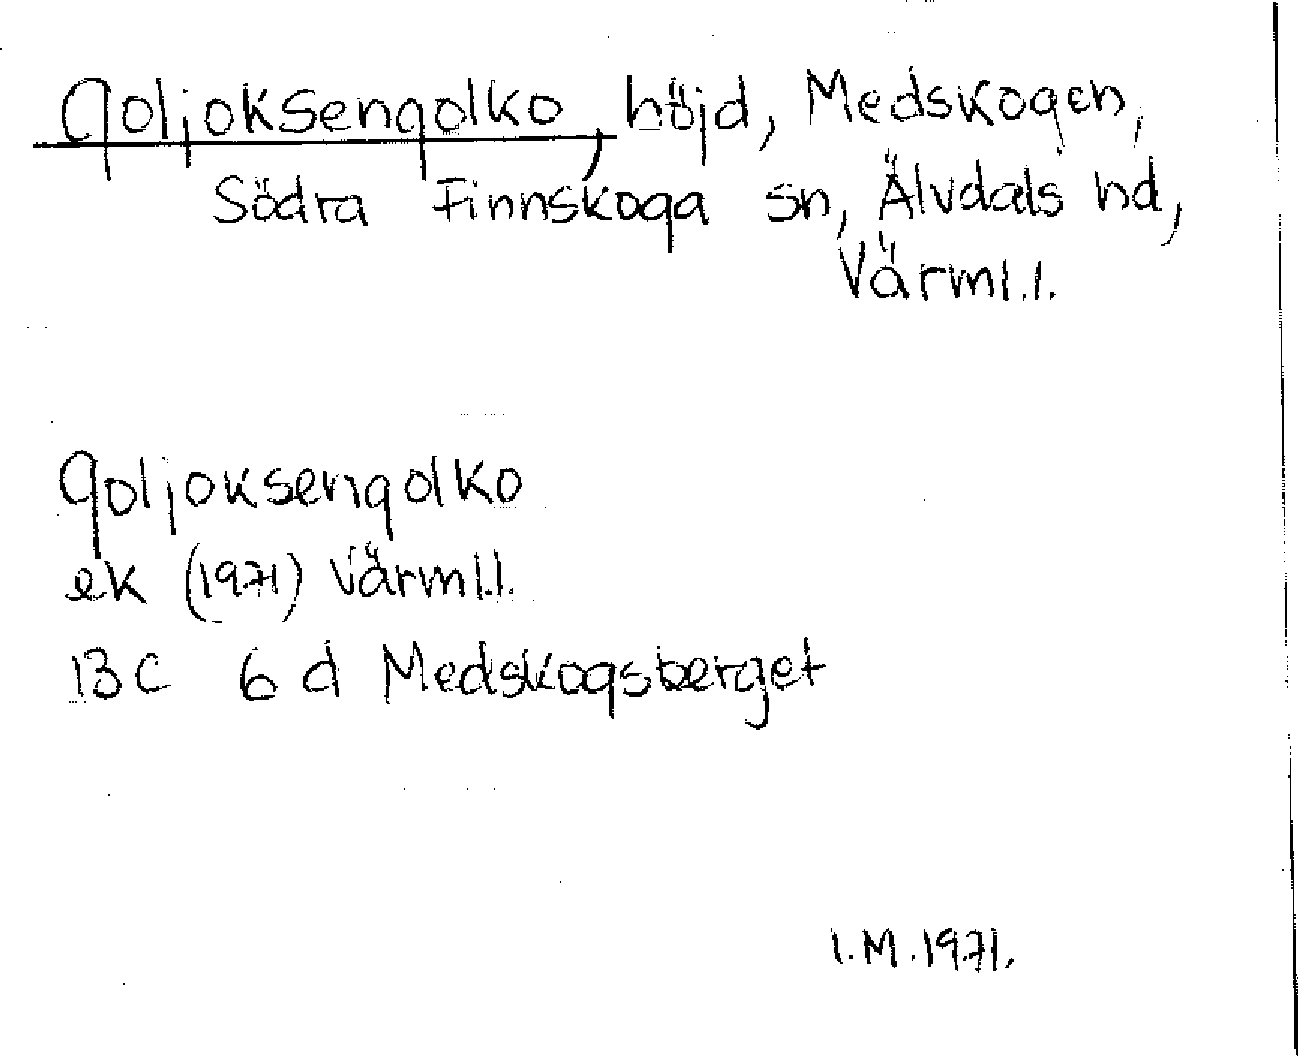 Goljoksengolko, höjd, Medskogen,
Södra Finnskoga sn, Älvdals hd,
Värml.l.
Goljoksengolko
ek (1971) Värml.l.
13 C 6 d Medskogsberget
I.M. 1971.